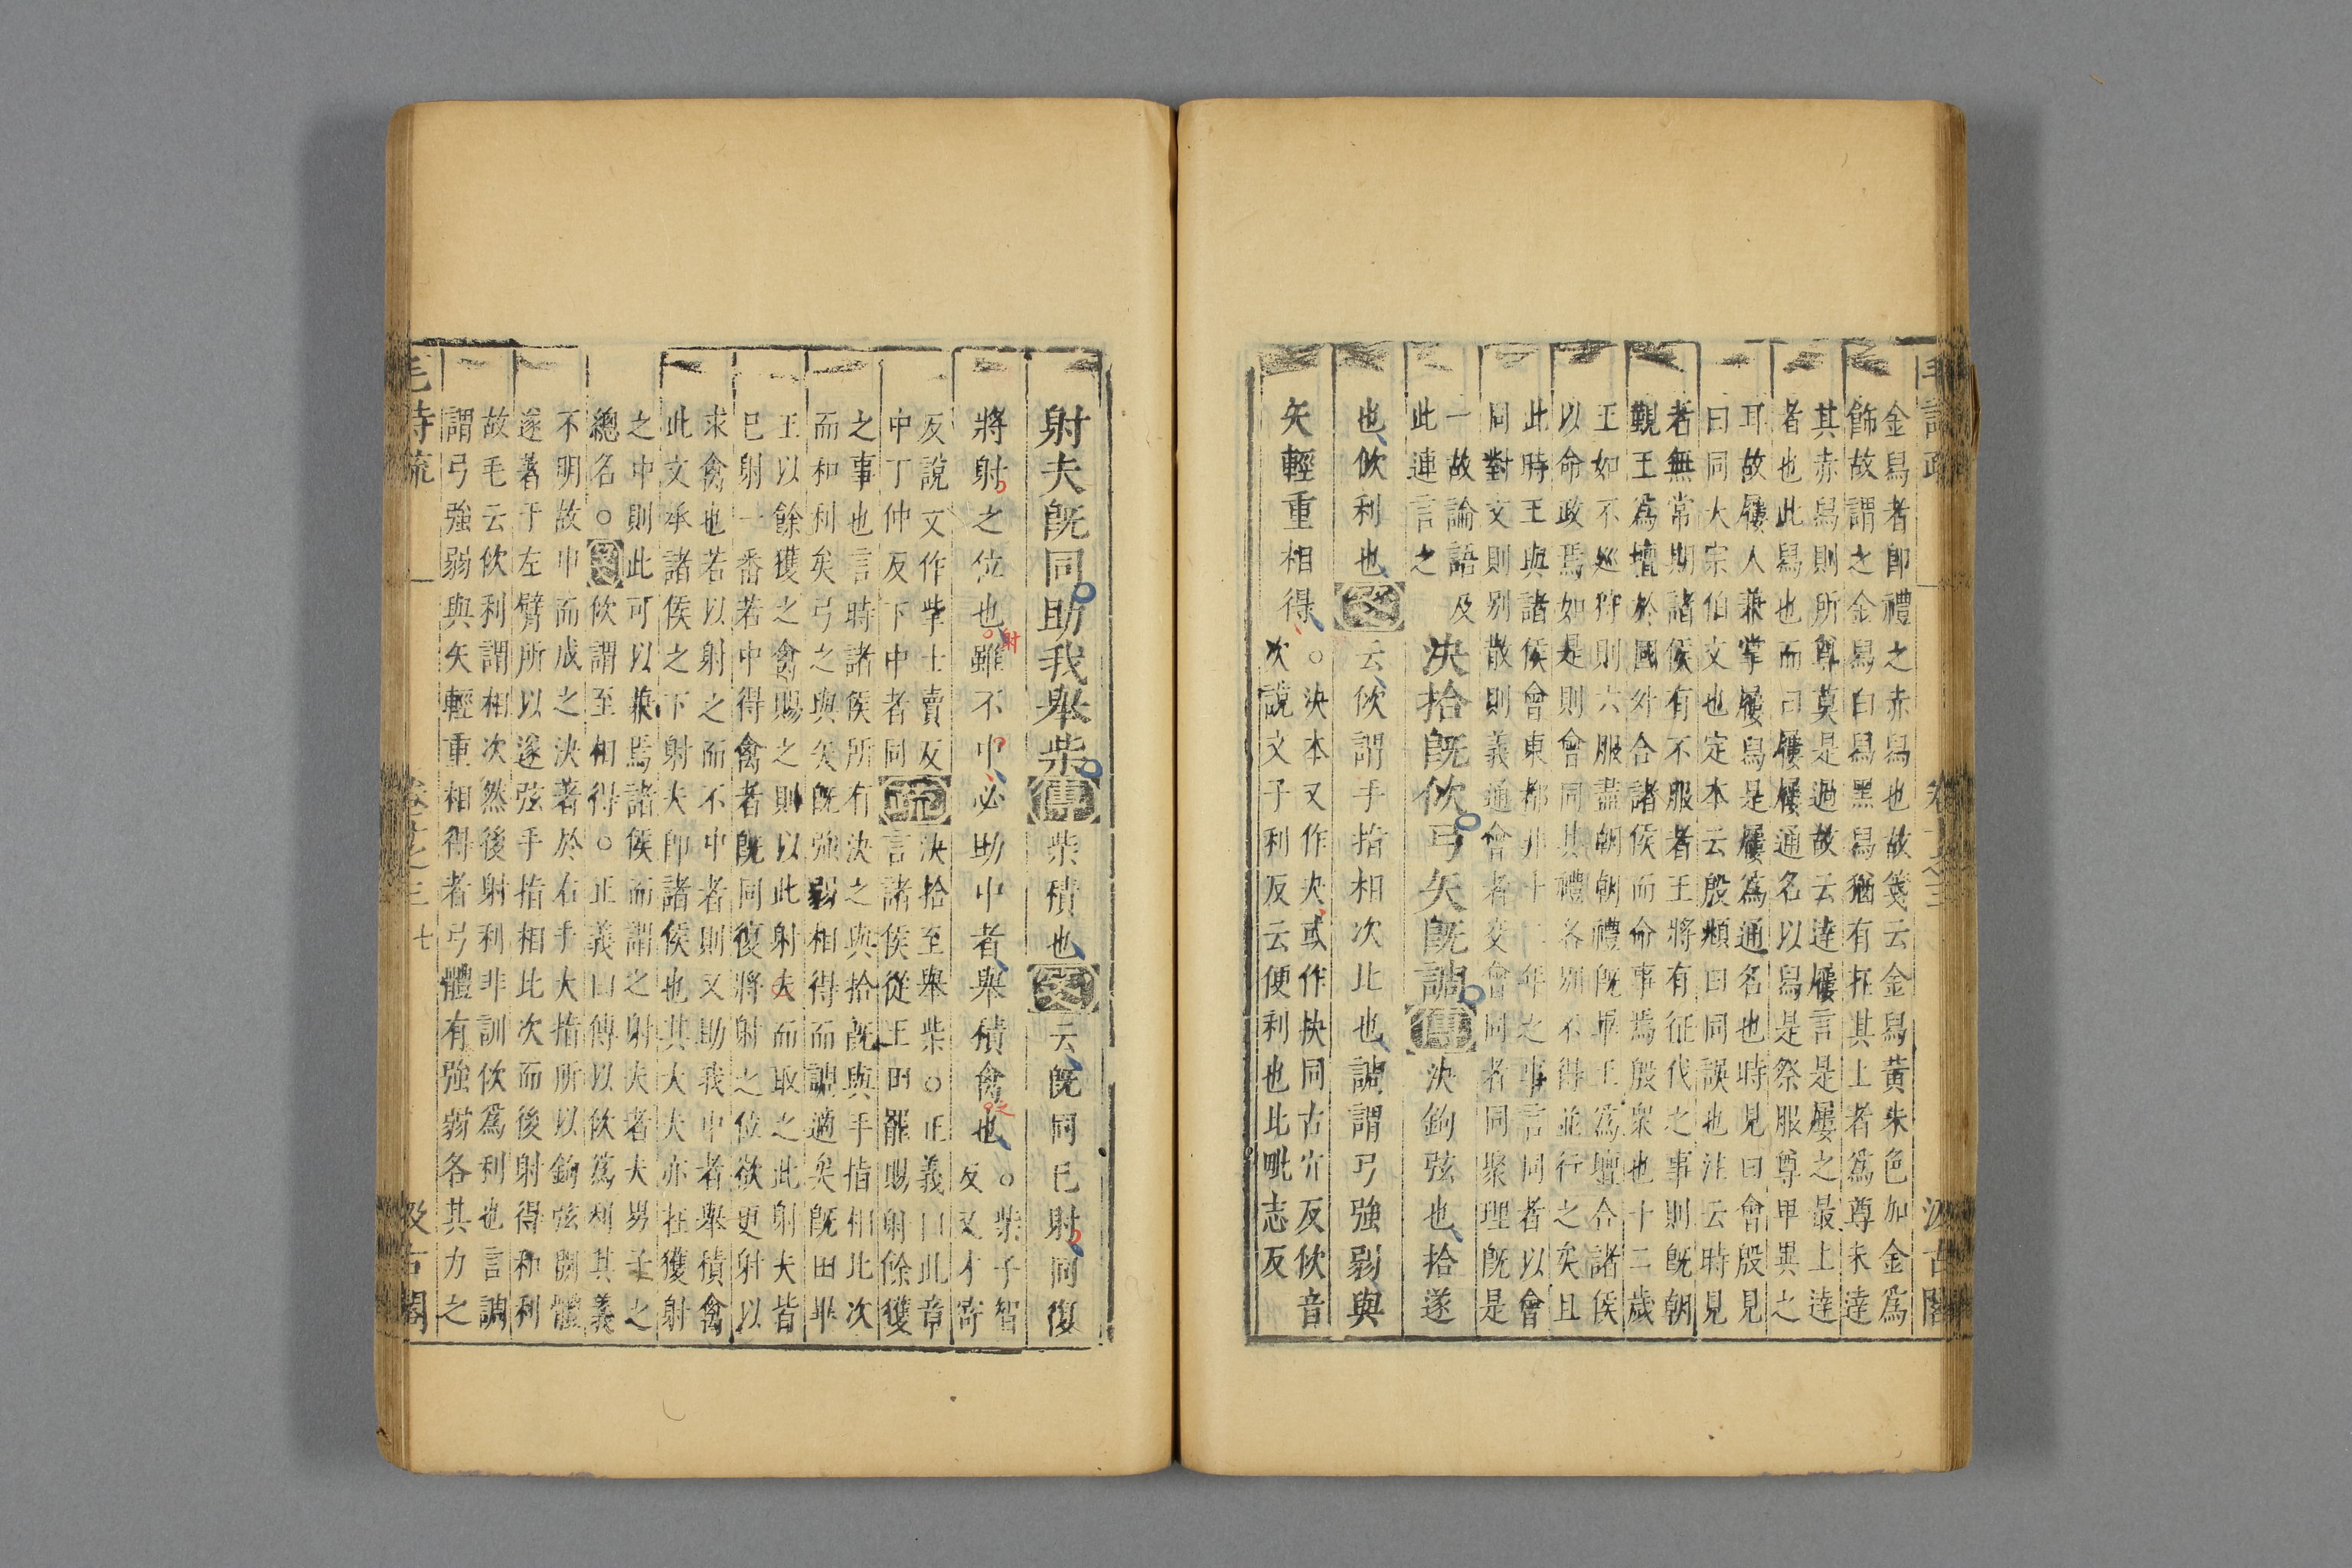 毛詩疏 卷十之三 汲古閣
金舄者卽禮之赤舄也故箋云金舄黃朱色加金爲
飾故謂之金舄白舄黑舄猶有在其上者爲尊未達
其赤舄則所尊莫是過故云達屨言是屨之最上達
者也此舄也而曰屨屨通名以舄是祭服尊卑異之
耳故屨人兼掌屨舄是屨爲通名也時見曰會殷見
曰同大宗伯文也定本云殷頫曰同誤也注云時見
者無常期諸侯有不服者王將有征伐之事則旣朝
覲王爲壇於國外合諸侯而命事焉殷衆也十二歲
王如不巡狩則六服盡朝朝禮旣畢王爲壇合諸侯
以命政焉如是則會同其禮各別不得並行之矣且
此時王與諸侯會東都非十二年之事言同者以會
同對文則别散則義通會者交會同者同聚理旣是
一故論語及
此連言之
決拾旣佽弓矢旣調傳決鉤弦也拾遂
也佽利也箋云佽謂手指相次比也調謂弓強弱與
矢輕重相得
○決本又作夬或作抉同古穴反佽音
次說文子利反云便利也比毗志反
射夫旣同助我舉柴傳柴積也箋云旣同已射同復
將射之位也雖不中必助中者舉積禽也
射
之
○柴子智
反又才寄
反說文作㧘士賣反
中丁仲反下中者同
疏
決拾至舉柴○正義曰此章
言諸侯從王田罷賜射餘獲
之事也言時諸侯所有決之與拾旣與手指相比次
而和利矣弓之與矢旣強弱相得而調適矣旣田畢
王以餘獲之禽賜之則以此射夫而取之此射夫皆
已射一番若中得禽者旣同復將射之位欲更射以
求禽也若以射之而不中者則又助我中者舉積禽
此文承諸侯之下射夫卽諸侯也其大夫亦在獲射
之中則此可以兼焉諸侯而謂之射夫者夫男子之
總名○箋佽謂至相得○正義曰傳以佽爲利其義
不明故申而成之決著於右手大指所以鉤弦開體
遂著于左臂所以遂弦手指相比次而後射得和利
故毛云佽利謂相次然後射利非訓佽爲利也言調
謂弓強弱與矢輕重相得者弓體有強弱各其力之
毛詩疏 卷十之三 七 汲古閣